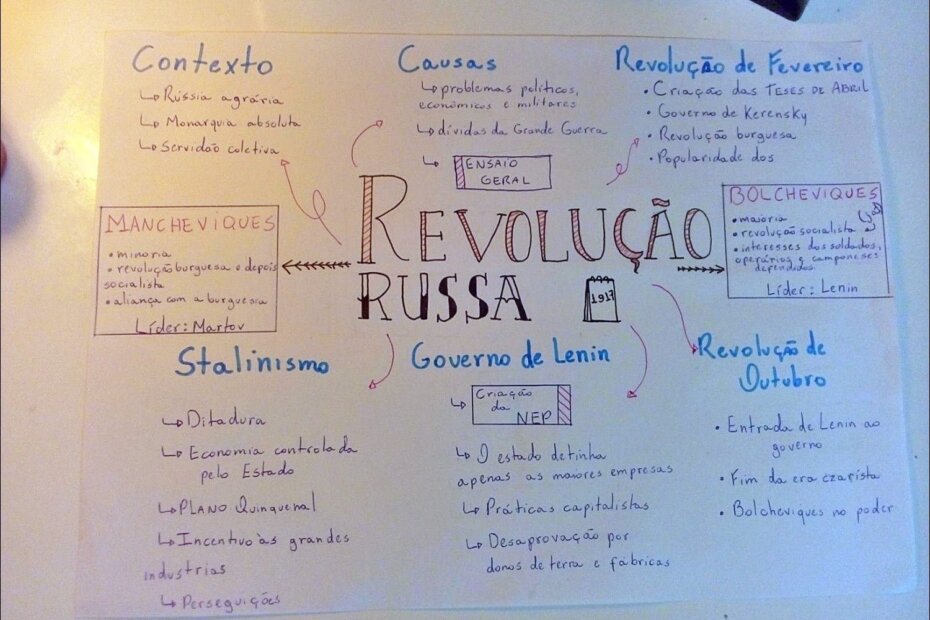 Contexto
↳ Rússia agrária
↳ Monarquia absoluta
↳ Servidão coletiva
Causas
↳ problemas políticos,
econômicos e militares
↳ dívidas da Grande Guerra
↳ ENSAIO
GERAL
Revolução de Fevereiro
• Criação das TESES DE ABRIL
• Governo de Kerensky
• Revolução burguesa
• Popularidade dos
MANCHEVIQUES
• minoria
• revolução burguesa e depois
socialista
• aliança com a burguesia
Líder: Martov
REVOLUÇÃO
RUSSA
1917
BOLCHEVIQUES
• maioria
• revolução socialista
• interesses dos soldados,
operários e camponeses
dependidos.
Líder: Lenin
Stalinismo
↳ Ditadura
↳ Economia controlada
pelo Estado
↳ PLANO Quinquenal
↳ Incentivo às grandes
industrias
↳ Perseguições
Governo de Lenin
↳ Criação
da
NEP
↳ O estado detinha
apenas as maiores empresas
↳ Práticas capitalistas
↳ Desaprovação por
donos de terra e fábricas
Revolução de
Outubro
• Entrada de Lenin ao
governo
• Fim da era czarista
• Bolcheviques no poder